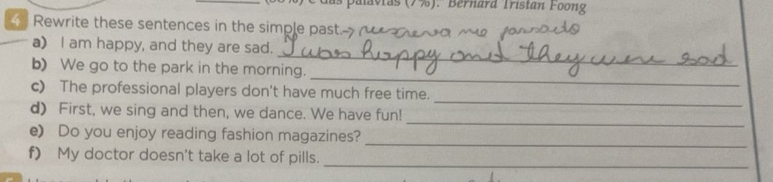 e das palavras (7%). Bernard Tristan Foong
4 Rewrite these sentences in the simple past. → reescreva no passado
a) I am happy, and they are sad. I was happy and they were sad
b) We go to the park in the morning.
c) The professional players don't have much free time.
d) First, we sing and then, we dance. We have fun!
e) Do you enjoy reading fashion magazines?
f) My doctor doesn't take a lot of pills.